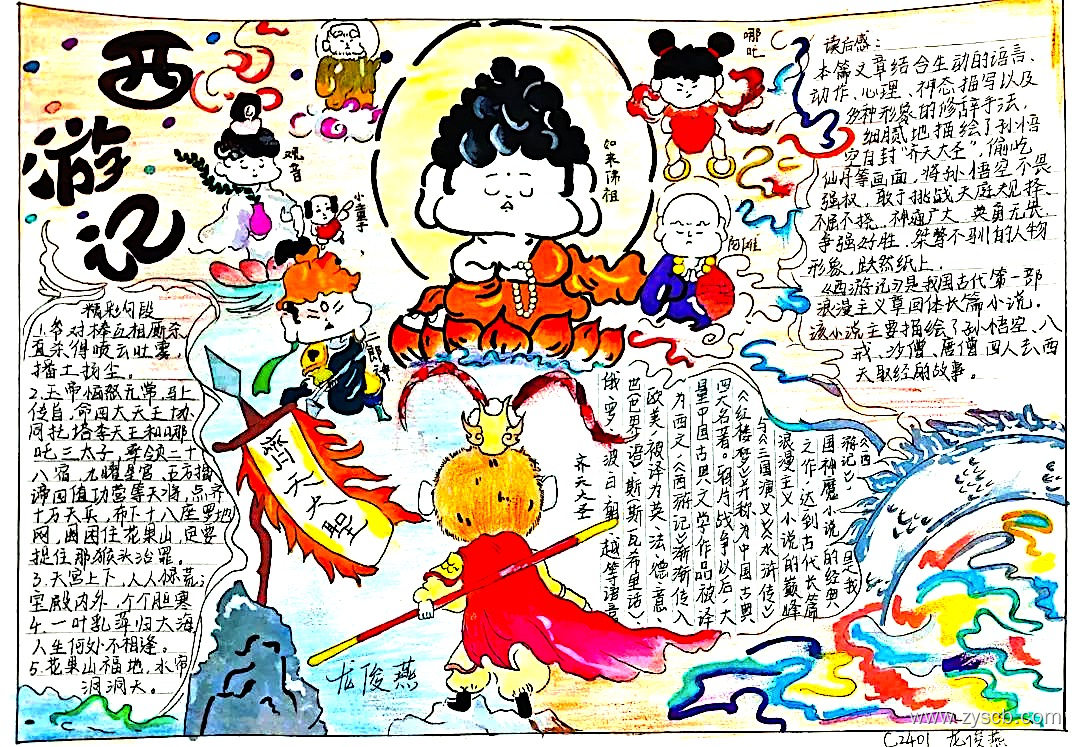 西
游
记
哪吒
观音
小童子
如来佛祖
阿难
二郎神
齐天大圣
齊天大聖
精彩句段
1.拳对棒互相厮杀,
直杀得喷云吐雾,
播土扬尘。
2.玉帝恼怒无常,马上
传旨,命四大天王,协
同托塔李天王和哪
吒三太子,率领二十
八宿,九曜星官、五方揭
谛四值功曹等天将,点齐
十万天兵,布下十八座罗地
网,围困住花果山,定要
捉住那猴头治罪。
3.天宫上下,人人惊荒;
宝殿内外,个个胆寒
4.一叶乱萍归大海,
人生何处不相逢。
5.花果山福地,水帘
洞洞天。
读后感:
本篇文章结合生动的语言、
动作、心理、神态描写以及
多种形象的修辞手法,
细腻地描绘了孙悟
空自封“齐天大圣”,偷吃
仙丹等画面,将孙悟空不畏
强权、敢于挑战天庭
不屈不挠,神通广大,英勇无畏
争强好胜,桀骜不驯的人物
形象,跃然纸上。
《西游记》是我国古代第一部
浪漫主义章回体长篇小说。
该小说主要描绘了孙悟空、八
戒、沙僧、唐僧四人去西
天取经的故事。
《西
游记》是我
国神魔小说的经典
之作,达到古代长篇
浪漫主义小说的巅峰
与《三国演义》《水浒传》
《红楼梦》并称为中国古典
四大名著。鸦片战争以后,大
量中国古典文学作品被译
为西文,《西游记》渐渐传入
欧美,被译为英、法、德、意、
西(巴界)语、斯斯瓦希里语)
俄、罗、波、日、朝、越等语言
龙俊燕
www.zyscb.com
C2401 龙俊燕